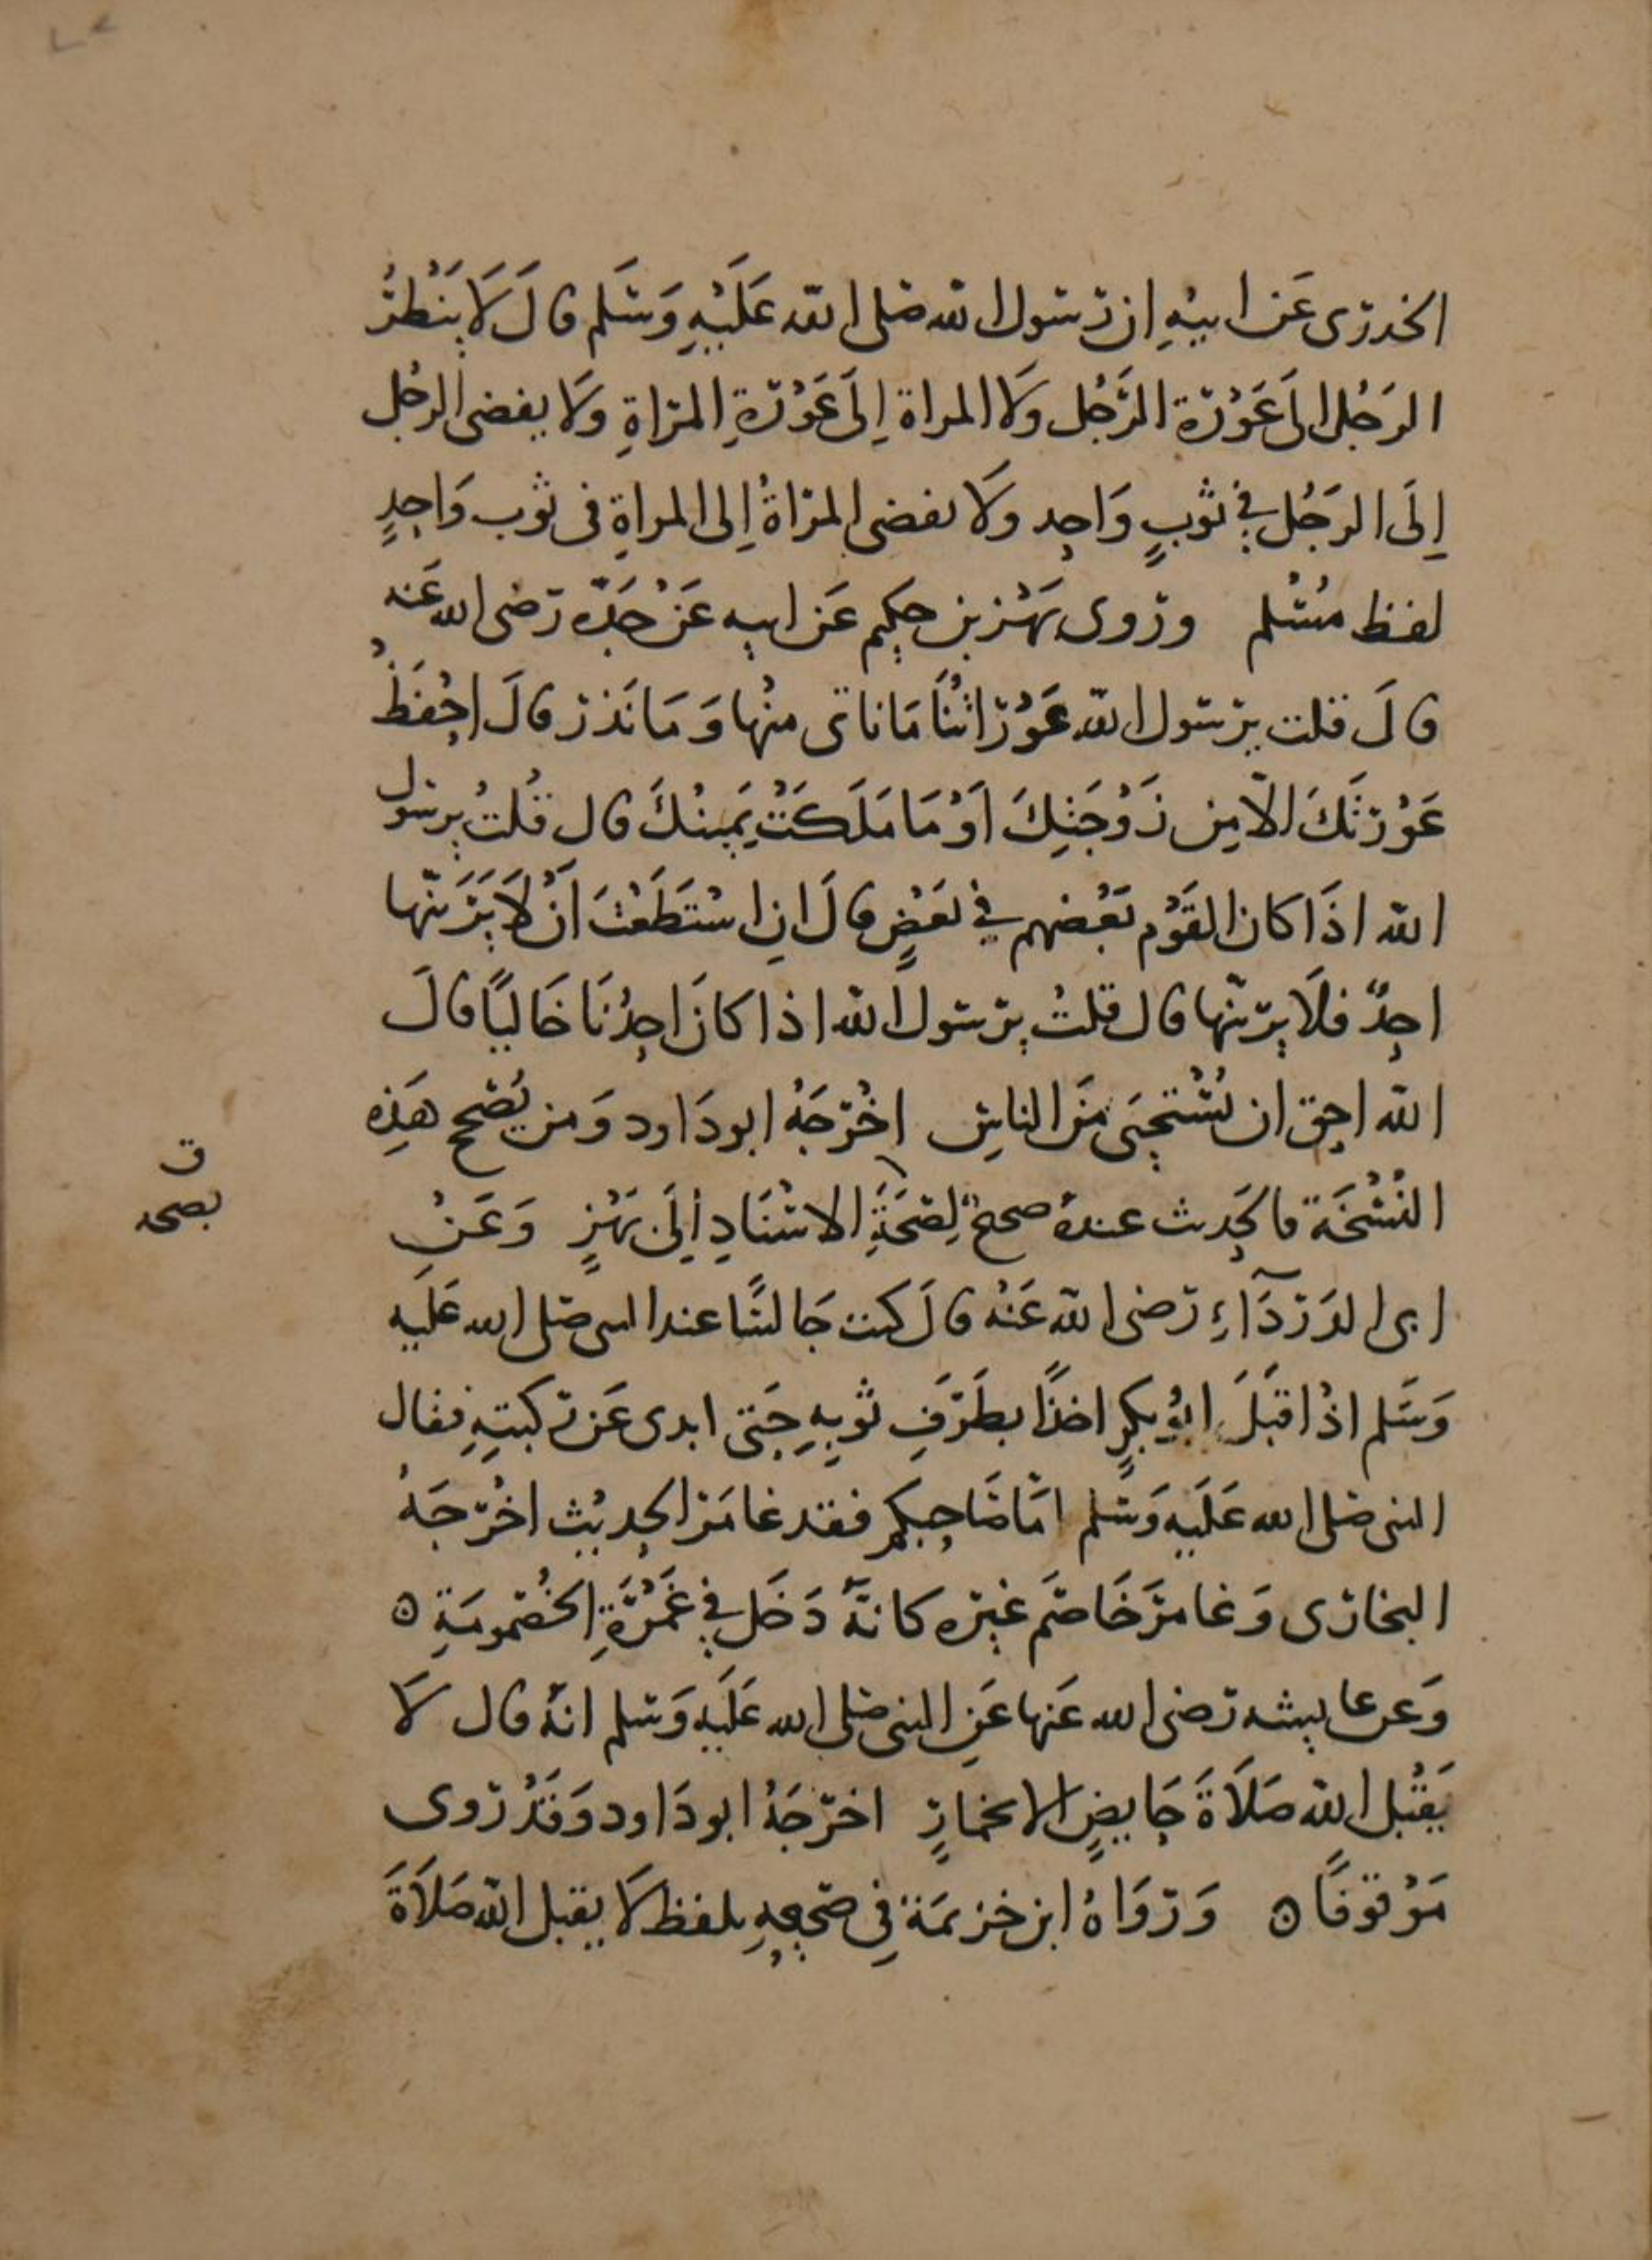 الخدرى عَن ابيْهِ ان رسول الله صلى الله عَلَيْهِ وَسَلم قالَ لَا يَنْظرُ
الرَجُل الىَ عَوْرَة الرَّجُل وَلا المراة اِلىَ عَوْرَةِ المرْاةِ وَلا يفضى الرجُل
اِلَى الرَجُل في ثوبٍ وَاحِد وَلَا يفضى المرْاةُ اِلى المراةِ فى ثوب وَاحِدٍ
لفظ مُسْلم وروى بَهْز بن حكِيم عَن ابيه عَنْ جَدّه رَضى الله عَنه
قالَ قلت يرَسول الله عَوْرَاتُنَا مَا ناتى منْها وَمَا نَذر قالَ احْفَظْ
عَوْرَتَكَ الاّ مِن زَوْجَتِكَ اَوْ مَا مَلَكَتْ يَمينُكَ قال قُلتُ يرسول
الله اذَا كان القَوْم بَعْضهم في بَعْضٍ قالَ انِ اسْتَطَعْتَ اَنْ لَا يَرَينّها
احِدٌ فلَا يرَينّها قال قلتُ يرَسول الله اذا كانَ احِدُنَا خَاليًا قالَ
الله احِق ان يُسْتحِيَى مَنَ الناسِ اخْرَجَهُ ابو دَاود وَمن يُصَحح هَذِه
النُسْخَة فالحَدِيث عندهُ صحيحٌ لِصَحَةِ الاسْنَادِ اِلَى بَهْزٍ وَعَنْ
ابى الدَرْدَآءِ رَضى الله عَنْه قالَ كنت جَالسًا عند النبى صَلى الله عَلَيه
وَسَلم اذْ اقبَلَ ابُو بكرٍ اخذًا بطَرَفِ ثوبِهِ حِتى ابدى عَن ركبتِهِ فقال
النبى صَلى الله عَلَيه وَسَلم امّا صَاحِبكم فقد غامَر الحِديْث اخْرَجَهُ
البخارَى وَغامرَ خَاصَم غيْره كانهّ دَخَل في غَمْرَةِ الخُصُومَةِ ه
وَعن عايشه رَضى الله عَنها عَنِ النبى صَلى الله عَلَيه وَسَلم انهُ قال لَا
يَقْبل الله صَلَاةَ حَايضٍ الا بخمارٍ اخرَجَهُ ابو دَاود وَقَدْ رَوى
مَوْقوفًا ه وَرَوَاهُ ابن خزيمَة فِي صَحيحِهِ بلفظ لَا يقبل الله صَلَاةَ
ق
بصحه